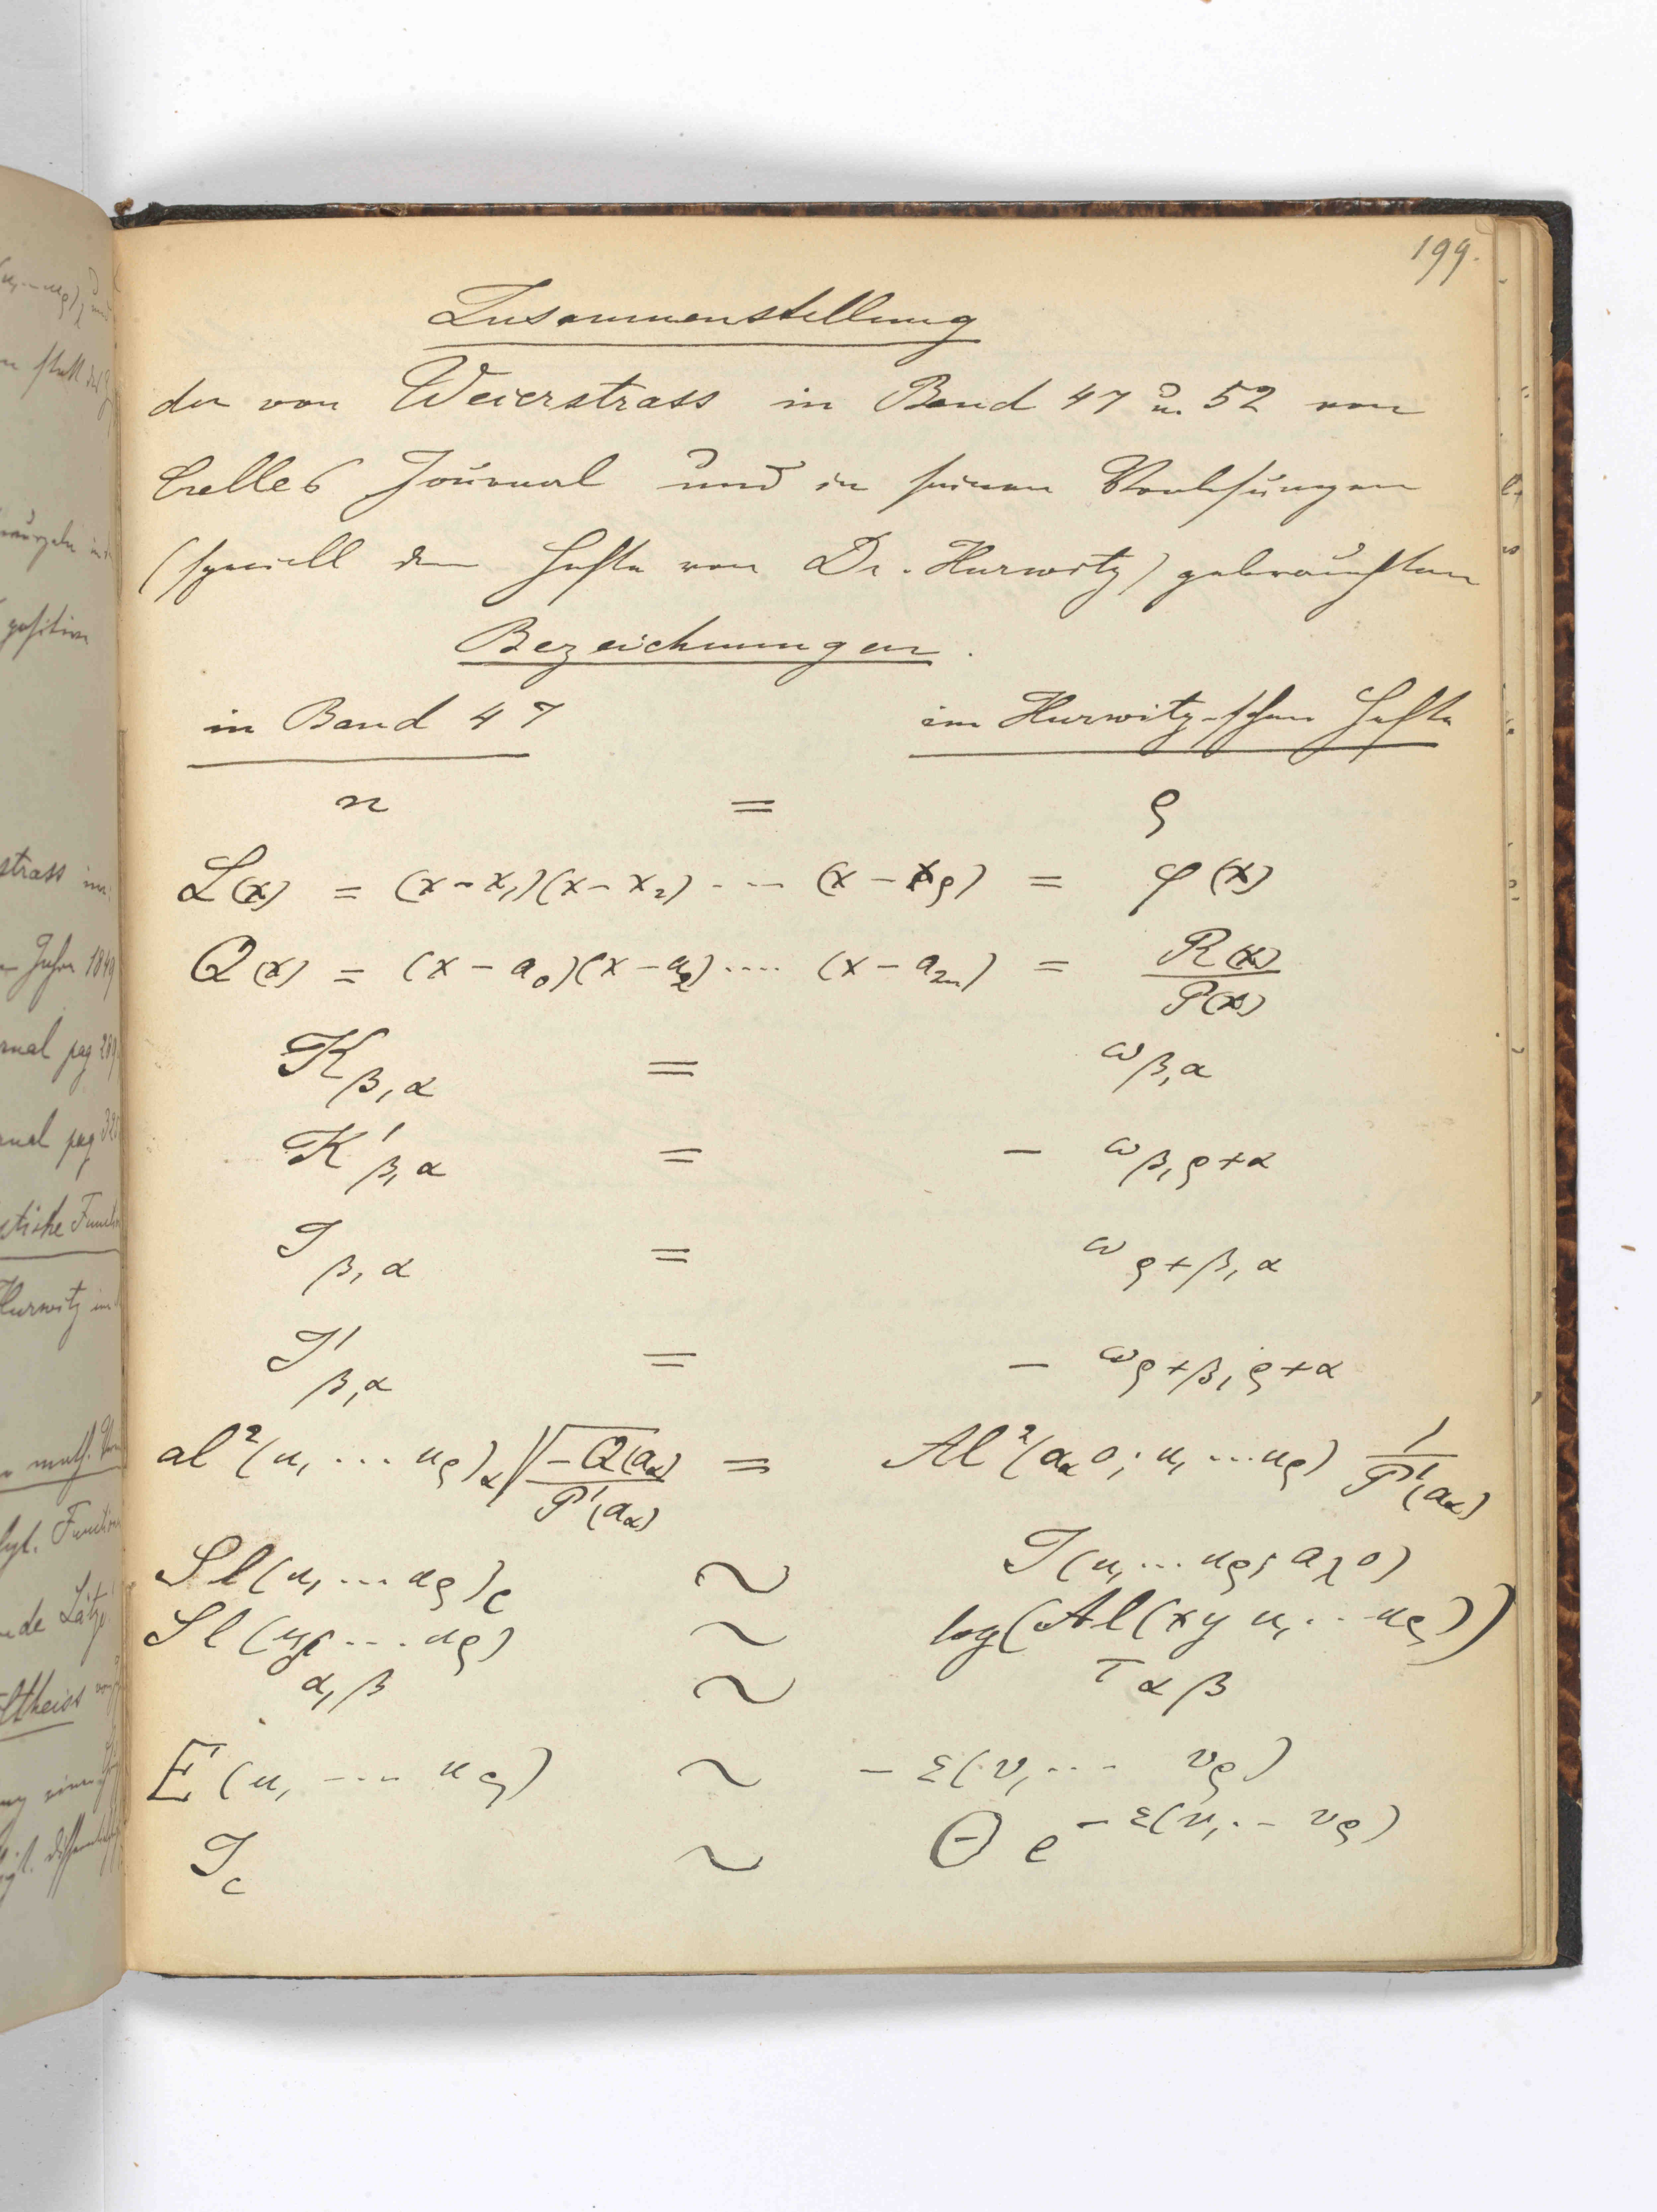 199.
Zusammenstellung
der von Weierstrass in Band 47 u. 52 von
Crelles Journal und in seinen Vorlesungen
(speciell dem Hefte von Dr. Hurwitz) gebrauchten
Bezeichnungen.
in Band 47 im Hurwitz-schen Hefte
n = ρ
L(x) = (x-x₁)(x-x₂) ---- (x-x_ρ) = φ(x)
Q(x) = (x-a₀)(x-a₂) .... (x-a₂ₙ) = R(x)/P(x)
K_β,α = ω_β,α
K'_β,α = - ω_β,ρ+α
J_β,α = ω_ρ+β,α
J'_β,α = - ω_ρ+β,ρ+α
al²(u₁ ... u_ρ)_α √(-Q(a_α)/P'(a_α)) = Al²(a_α 0; u₁ ... u_ρ) 1/P'(a_α)
Sl(u₁ ... u_ρ)_c ~ J(u₁ ... u_ρ; a_λ 0)
Sl(u₁ ... u_ρ) ~ log(Al(xy u₁ .. u_ρ))
α,β ~ τ_αβ
E'(u₁ ---- u_ρ) ~ - ε(v₁ ... v_ρ)
J_c ~ Θ e^-ε(v₁ .. v_ρ)
strass im
Jahre 1849
rnal pag 289
pag
stische Funct
Hurwitz in
math.
Funktion
positive